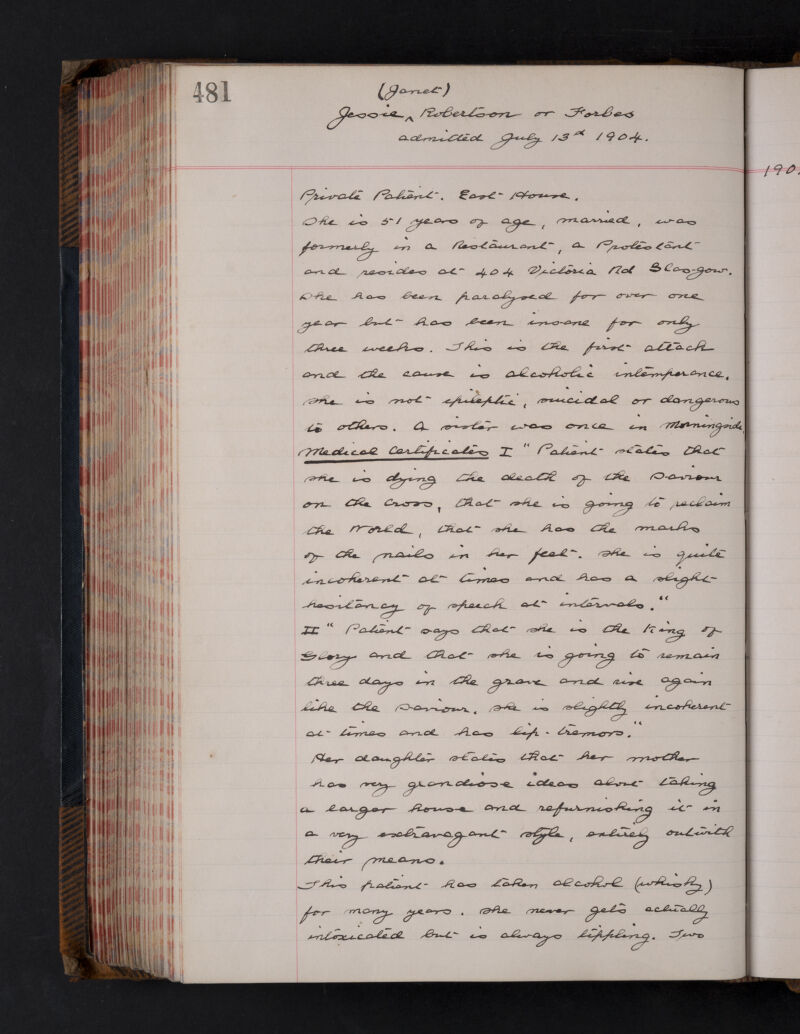 481
(Janet)
Jessie ^ Robertson or Forbes
admitted July 13th 1904.
190
Private Patient. East House.
She is 51 years of age, married, was
formerly in a Restaurant, a Protestant
and resides at 404 Victoria Rd Glasgow.
She has been paralysed for over one
year but has been insane for only
three weeks. This is the first attack
and the cause is alcoholic intemperance.
She is not epileptic, suicidal or dangerous
to others. A sister was once in Morningside.
Medical Certificates I " Patient states that
she is dying the death of the Saviour
on the Cross, that she is going to reclaim
the World, that she has the marks
of the nails in her feet. She is quite
incoherent at times and has a slight
hesitancy of speech at intervals."
II " Patient says that she is the King of
Glory and that she is going to remain
three days in the grave and rise again
like the Saviour. She is slightly incoherent
at times and has lip-tremors."
Her daughter states that her mother
has very grandiose ideas about taking
a larger house and refurnishing it in
a very extravagant style, entirely outwith
their means.
This patient has taken alcohol (whisky)
for many years. She never gets actually
intoxicated but is always tippling. Two